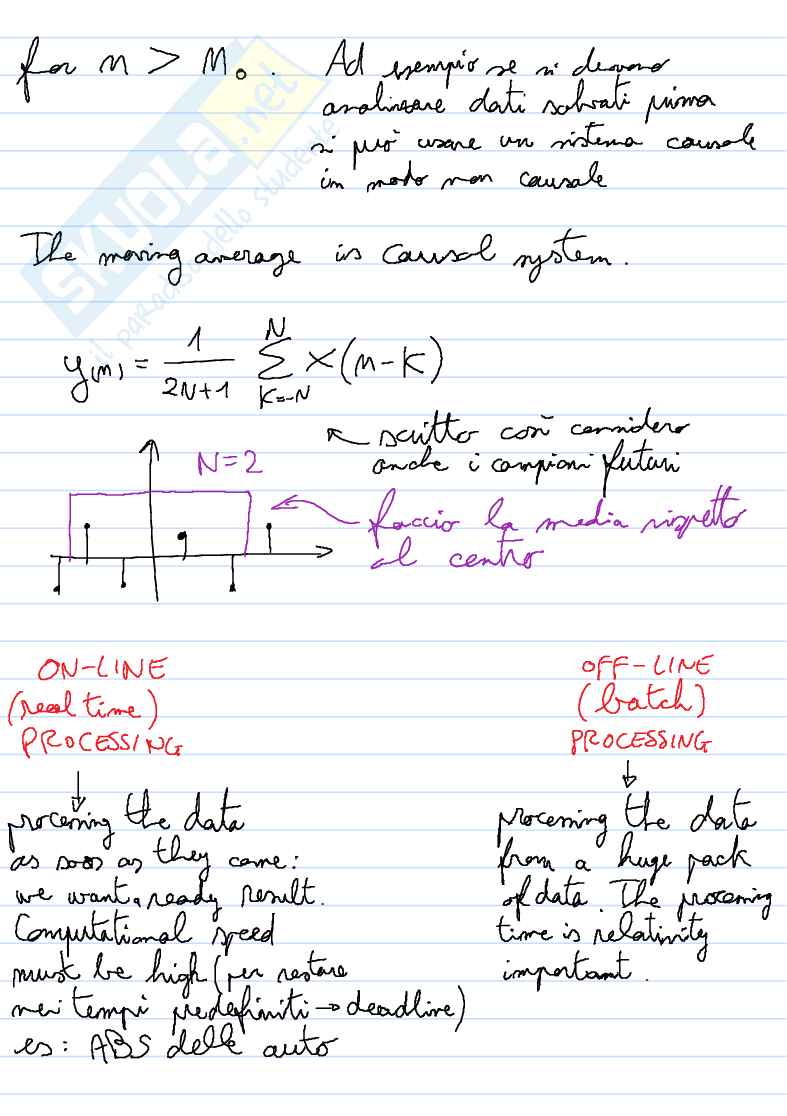 for n > n₀. Ad esempio se si devono
analizzare dati salvati prima
si può usare un sistema causale
in modo non causale
SKUOLA.net
il paradiso dello studente
The moving average is causal system.
y(n) = 1/(2N+1) Σ_{K=-N}^{N} x(n-K)
↖ scritto così considero
anche i campioni futuri
N=2
faccio la media rispetto
al centro
ON-LINE
(real time)
PROCESSING
processing the data
as soon as they came:
we want a ready result.
Computational speed
must be high (per restare
nei tempi predefiniti → deadline)
es: ABS delle auto
OFF-LINE
(batch)
PROCESSING
processing the data
from a huge pack
of data. The processing
time is relativity
important.